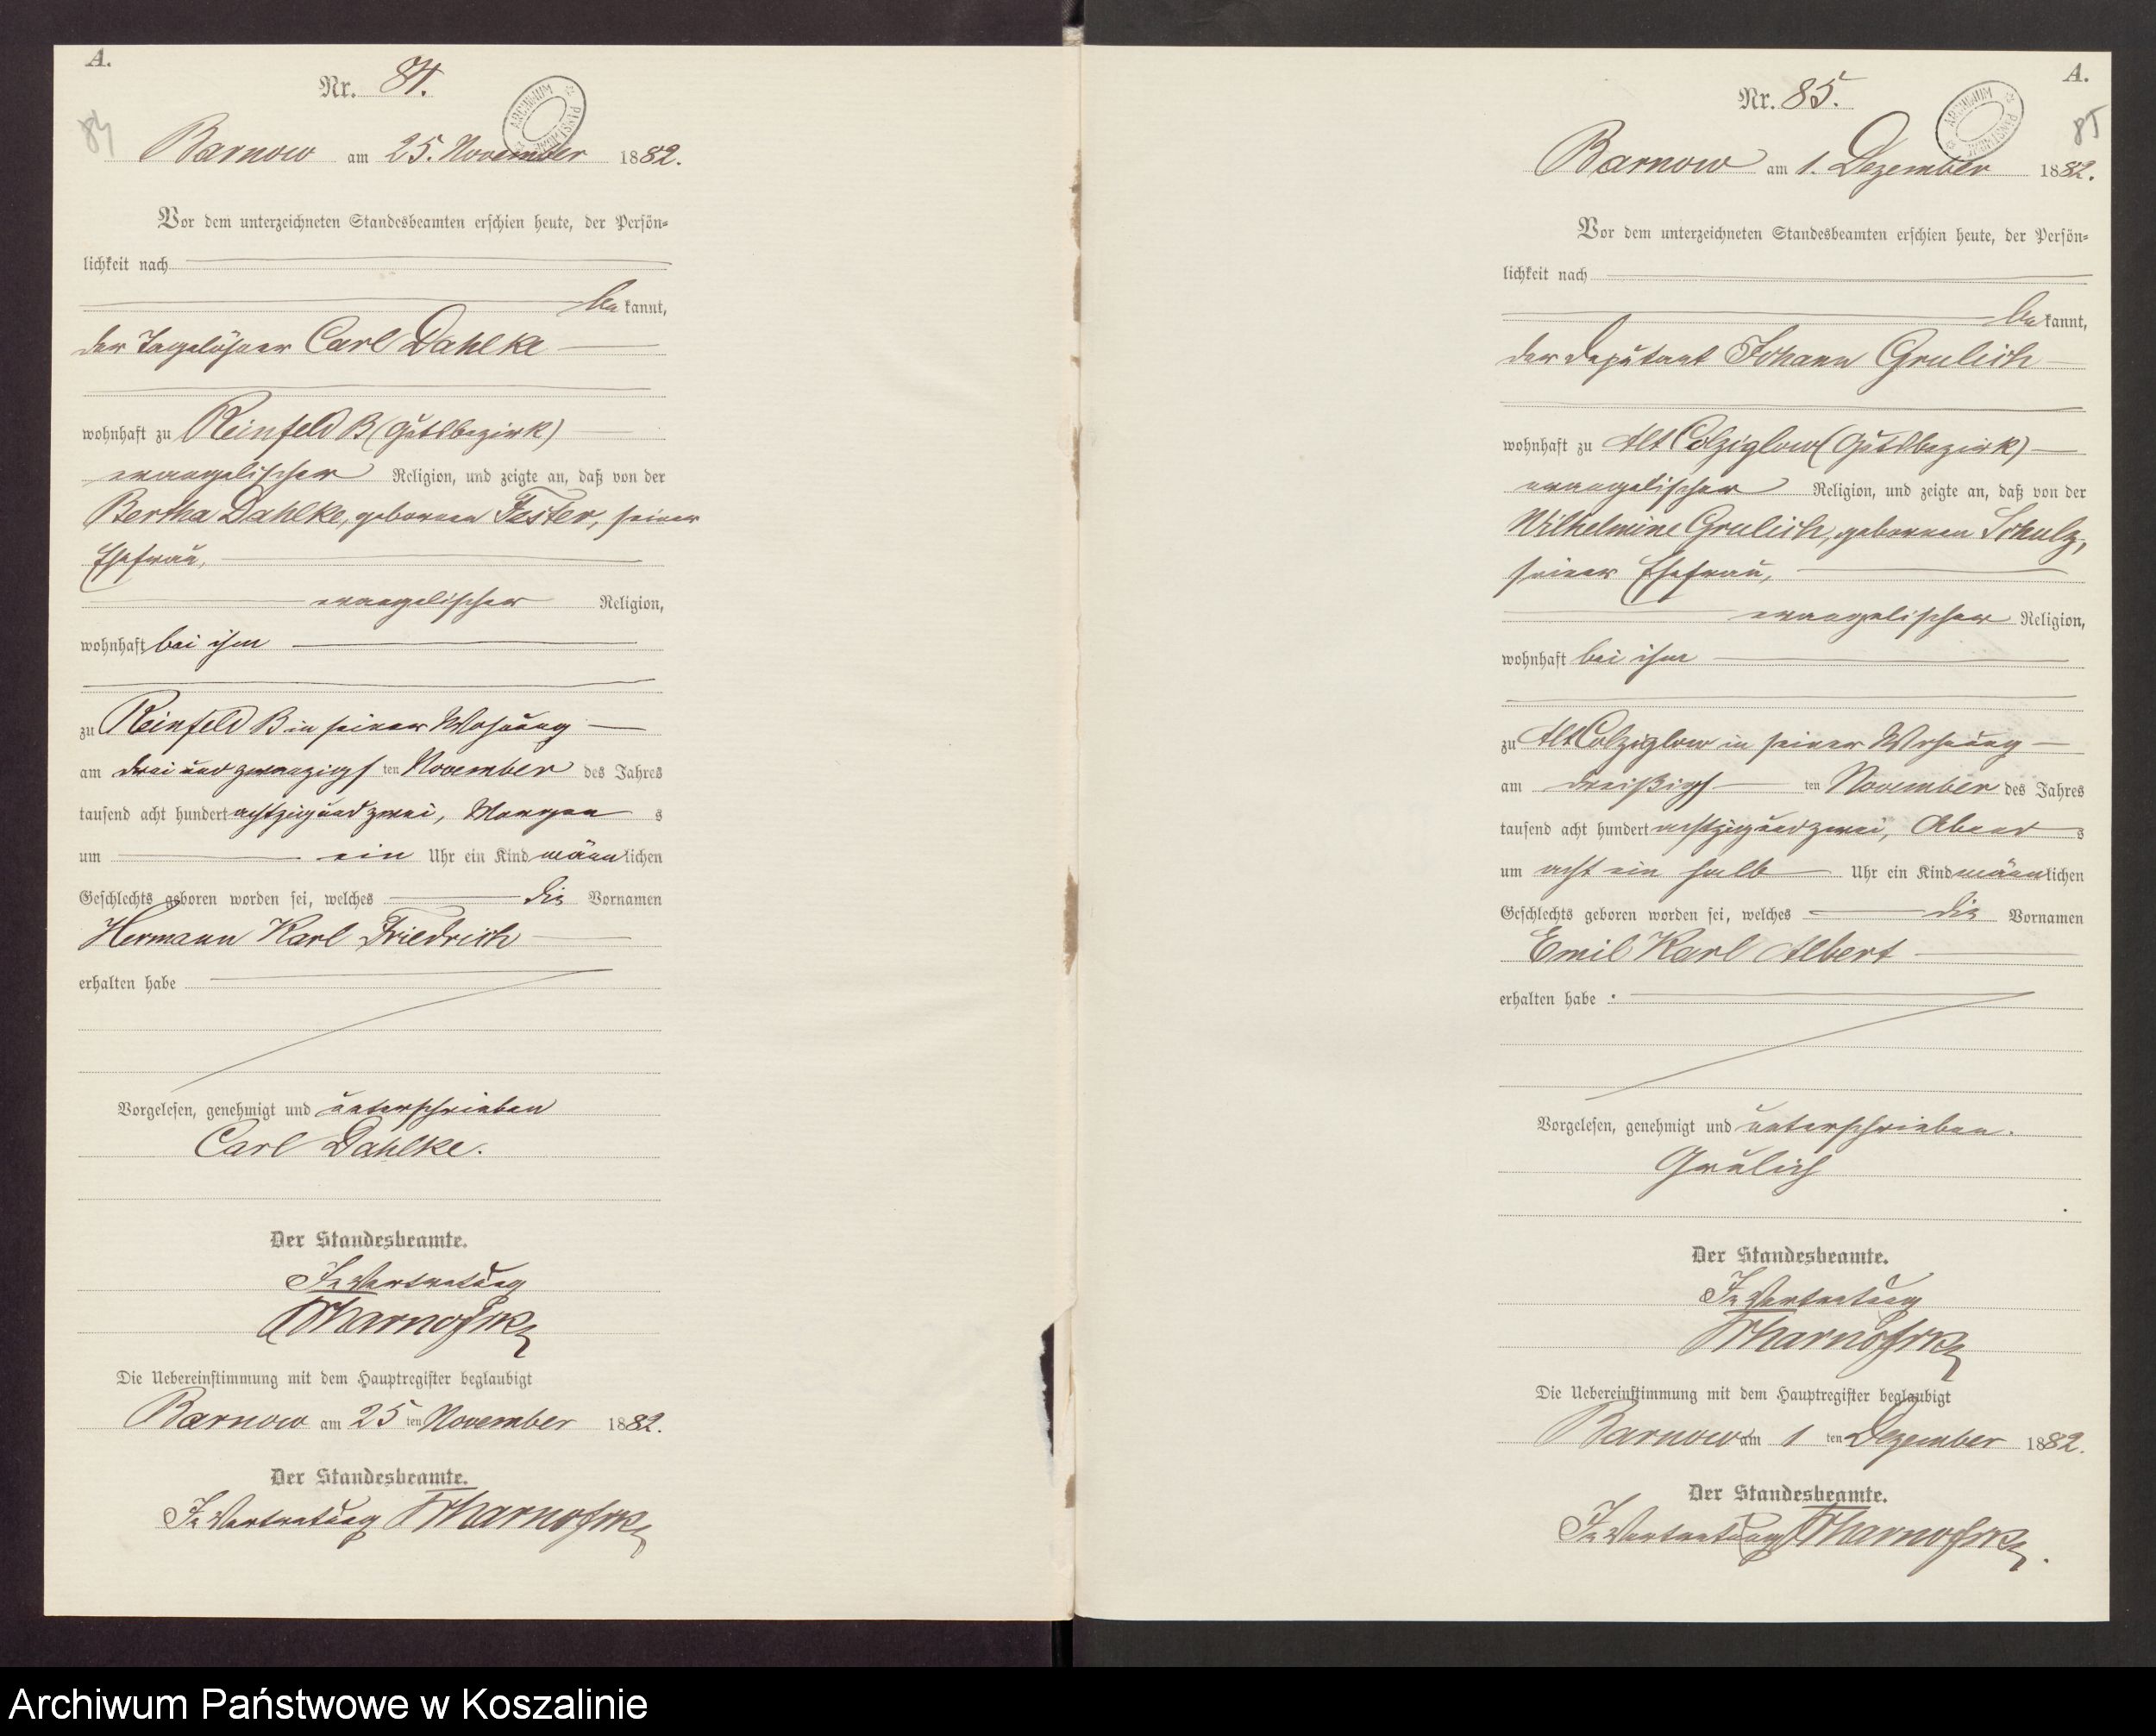 A.
Nr. 84.
84
Barnow am 25. November 1882.
Vor dem unterzeichneten Standesbeamten erschien heute, der Persön-
lichkeit nach
bekannt,
der Tagelöhner Carl Dahlke
wohnhaft zu Reinfeld B (Gutsbezirk)
evangelischer Religion, und zeigte an, daß von der
Bertha Dahlke, geborenen Tester, seiner
Ehefrau,
evangelischer Religion,
wohnhaft bei ihm
zu Reinfeld B in seiner Wohnung
am drei und zwanzigs ten November des Jahres
tausend acht hundert achtzig und zwei, Morgen s
um ein Uhr ein Kind männlichen
Geschlechts geboren worden sei, welches die Vornamen
Hermann Karl Friedrich
erhalten habe
Vorgelesen, genehmigt und unterschrieben
Carl Dahlke.
Der Standesbeamte.
In Vertretung
Die Uebereinstimmung mit dem Hauptregister beglaubigt
Barnow am 25 ten November 1882.
Der Standesbeamte.
In Vertretung
A.
Nr. 85.
85
ARCHIWUM PAŃSTWOWE
Barnow am 1. Dezember 1882.
Vor dem unterzeichneten Standesbeamten erschien heute, der Persön-
lichkeit nach
bekannt,
der Deputant Johann Grulich
wohnhaft zu Alt Colziglow (Gutsbezirk)
evangelischer Religion, und zeigte an, daß von der
Wilhelmine Grulich, geborenen Schulz,
seiner Ehefrau,
evangelischer Religion,
wohnhaft bei ihm
zu Alt Colziglow in seiner Wohnung
am dreißigs ten November des Jahres
tausend acht hundert achtzig und zwei, Abend s
um acht ein halb Uhr ein Kind männlichen
Geschlechts geboren worden sei, welches die Vornamen
Emil Karl Albert
erhalten habe.
Vorgelesen, genehmigt und unterschrieben.
Grulich
Der Standesbeamte.
In Vertretung
Die Uebereinstimmung mit dem Hauptregister beglaubigt
Barnow am 1 ten Dezember 1882.
Der Standesbeamte.
In Vertretung
Archiwum Państwowe w Koszalinie